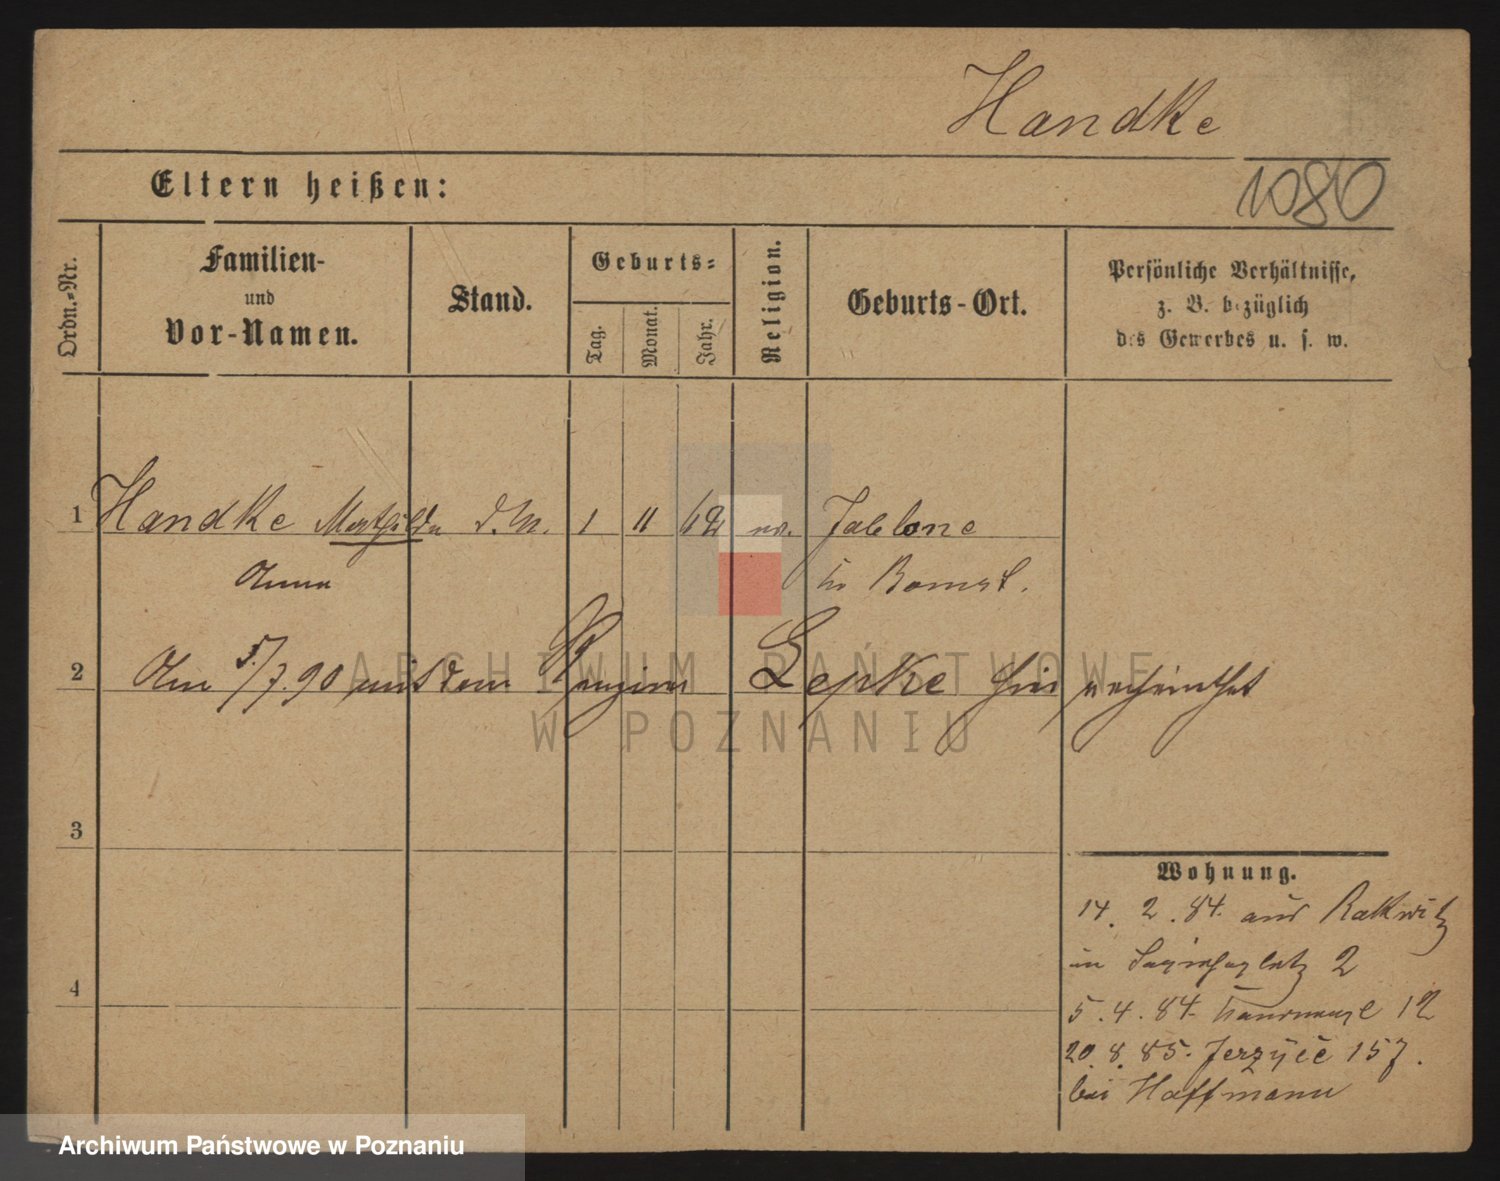 Handke
1080
Eltern heißen:
Ordn.-Nr.
Familien-
und
Vor-Namen.
Stand.
Geburts-
Tag.
Monat.
Jahr.
Religion.
Geburts-Ort.
Persönliche Verhältnisse,
z. B. bezüglich
des Gewerbes u. s. w.
1 Handke Mathilde d. M. 1 11 62 ev. Jablone
Anna Kr Bomst.
2 Am 5/7.90 mit dem Lepke hier verheirathet
3
4
Wohnung.
14. 2. 84. aus Rakwitz
in Sapiehaplatz 2
5. 4. 84. 12
20. 8. 85. Jerzyce 157.
bei Hoffmann
ARCHIWUM PAŃSTWOWE
W POZNANIU
Archiwum Państwowe w Poznaniu